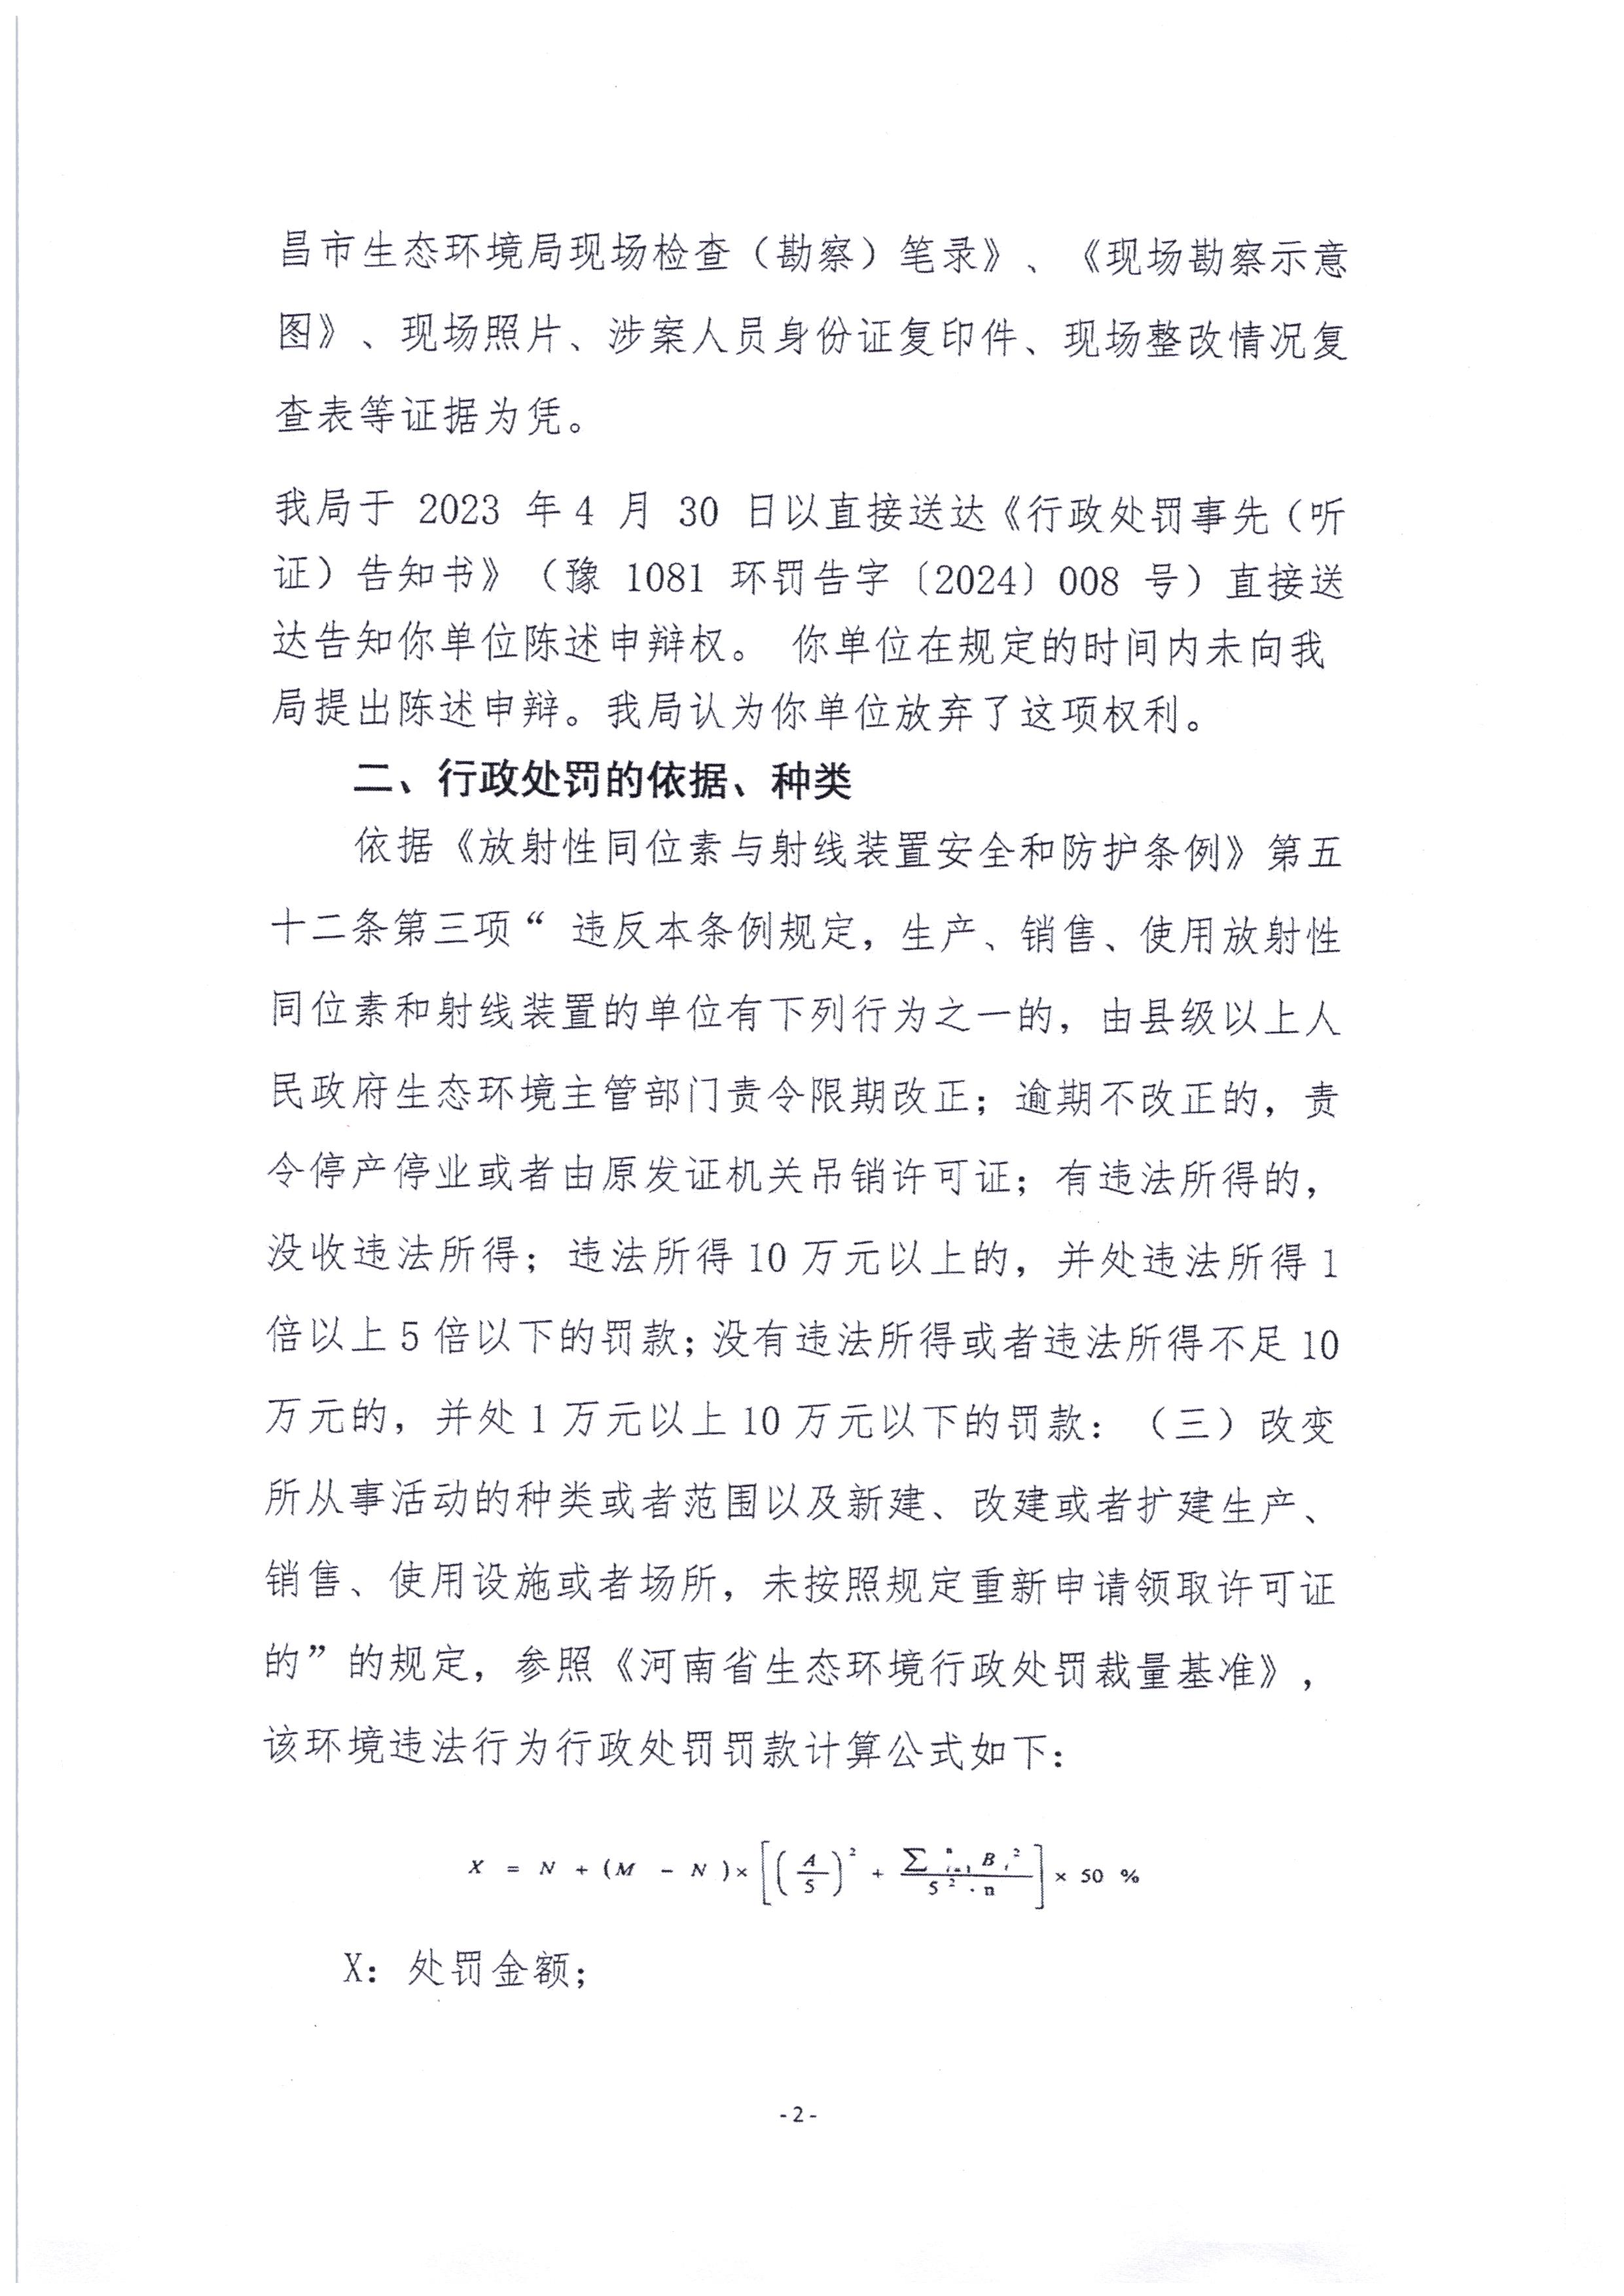 昌市生态环境局现场检查（勘察）笔录》、《现场勘察示意
图》、现场照片、涉案人员身份证复印件、现场整改情况复
查表等证据为凭。
我局于 2023 年 4 月 30 日以直接送达《行政处罚事先（听
证）告知书》（豫 1081 环罚告字〔2024〕008 号）直接送
达告知你单位陈述申辩权。 你单位在规定的时间内未向我
局提出陈述申辩。我局认为你单位放弃了这项权利。
二、行政处罚的依据、种类
依据《放射性同位素与射线装置安全和防护条例》第五
十二条第三项“ 违反本条例规定，生产、销售、使用放射性
同位素和射线装置的单位有下列行为之一的，由县级以上人
民政府生态环境主管部门责令限期改正；逾期不改正的，责
令停产停业或者由原发证机关吊销许可证；有违法所得的，
没收违法所得；违法所得 10 万元以上的，并处违法所得 1
倍以上 5 倍以下的罚款；没有违法所得或者违法所得不足 10
万元的，并处 1 万元以上 10 万元以下的罚款：（三）改变
所从事活动的种类或者范围以及新建、改建或者扩建生产、
销售、使用设施或者场所，未按照规定重新申请领取许可证
的”的规定，参照《河南省生态环境行政处罚裁量基准》，
该环境违法行为行政处罚罚款计算公式如下：
X = N + (M - N) × [(A/5)² + ∑ⁿᵢ₌₁ Bᵢ² / 5² · n] × 50 %
X：处罚金额；
- 2 -